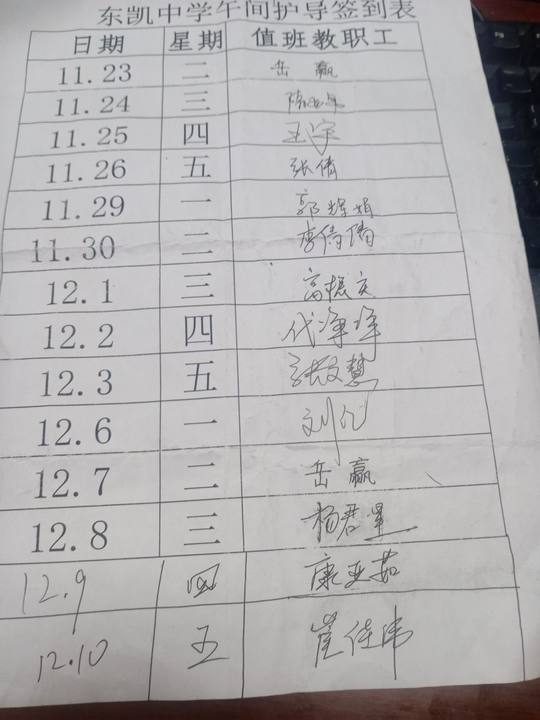 东凯中学午间护导签到表
日期 星期 值班教职工
11.23 二 岳赢
11.24 三
11.25 四 王宇
11.26 五 张倩
11.29 一 郭辉娟
11.30 二 李倩倩
12.1 三 高振文
12.2 四 代净净
12.3 五 张文慧
12.6 一 刘
12.7 二 岳赢
12.8 三 杨君星
12.9 四 康亚茹
12.10 五 崔佳伟